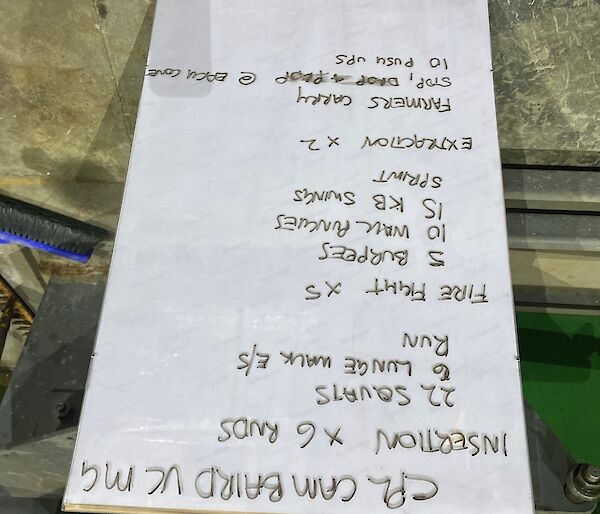 CPL CAM BAIRD VC MG
INSERTION X 6 RNDS
22 SQUATS
6 LUNGE WALK E/S
RUN
FIRE FIGHT X5
5 BURPEES
10 WALL
15 KB SWINGS
SPRINT
EXTRACTION X 2
FARMERS CARRY
STOP, DROP & PROP @ EACH CONE
10 PUSH UPS